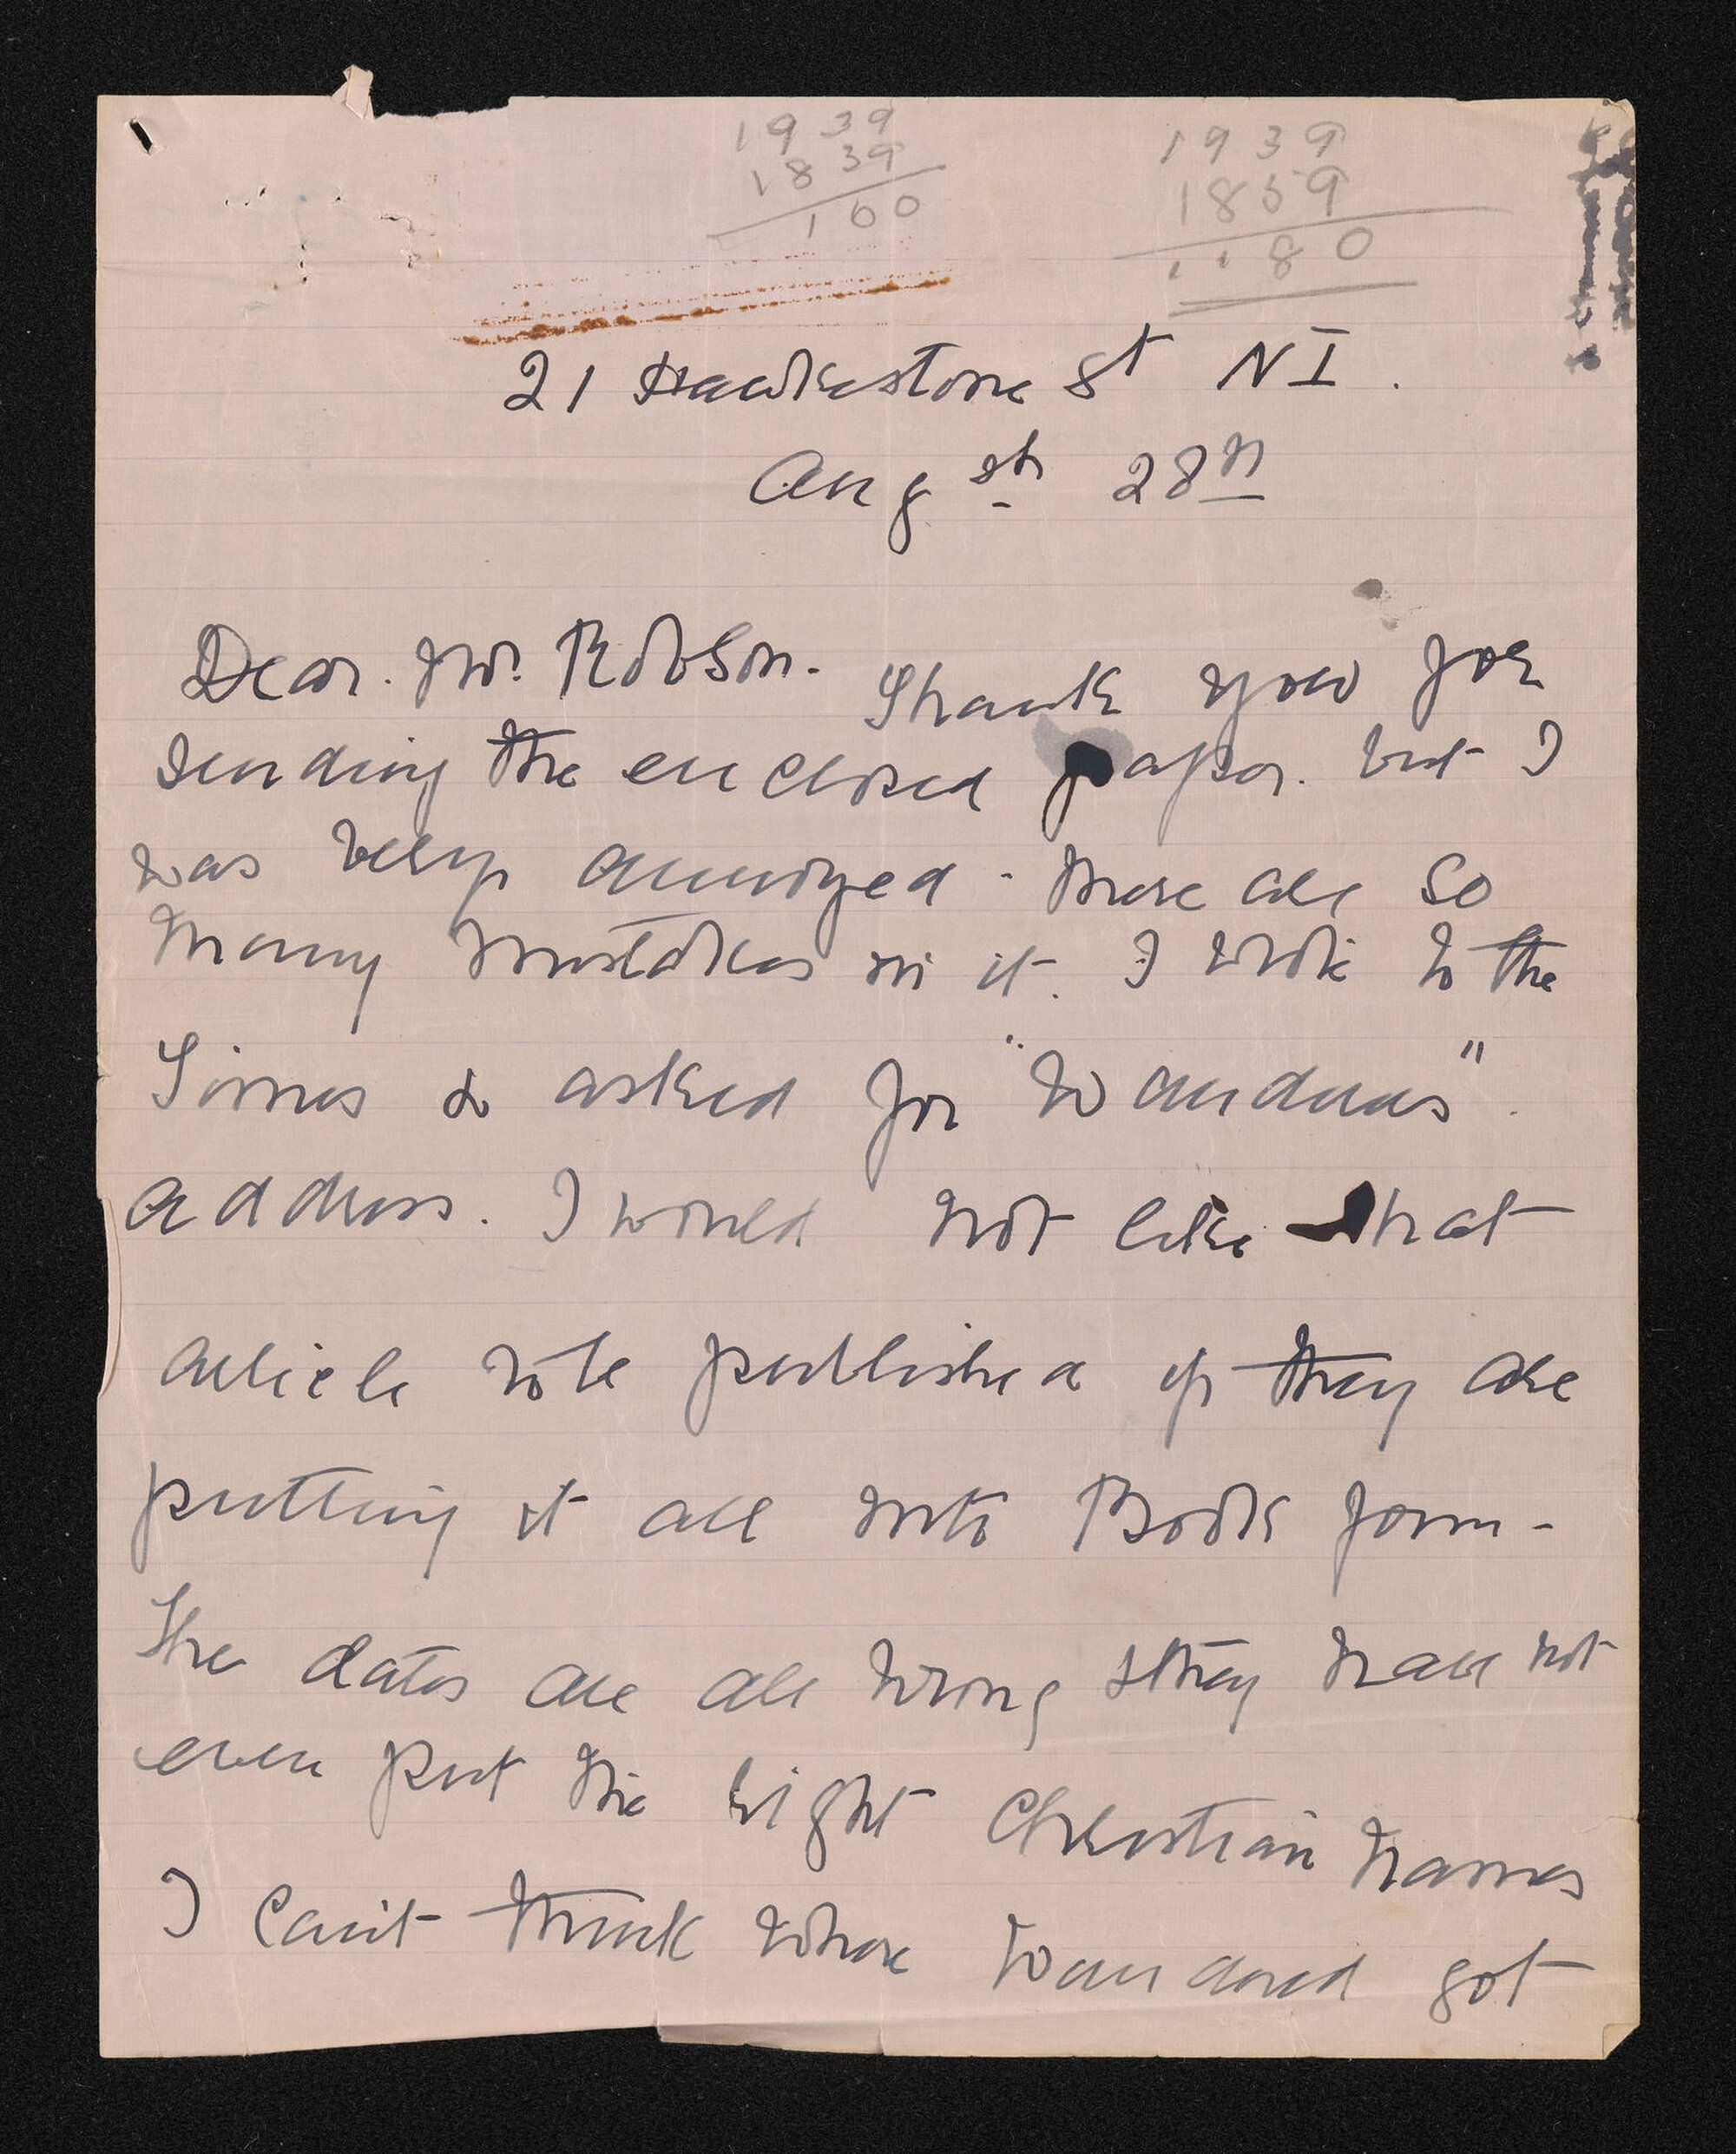 1939 1939
1839 1859
100 1180
21 Hawkestone St N I.
Aug st 28th
Dear. Mr. Robson. Thank you for
sending the enclosed paper. but I
was very annoyed - there are so
many mistakes in it. I wrote to the
Times & asked for "Wanderers"
address. I would not like that
article to be published if they are
putting it all into Book form -
The dates are all wrong & they have not
even put the right Christian Names
I can't think where Wanderer got